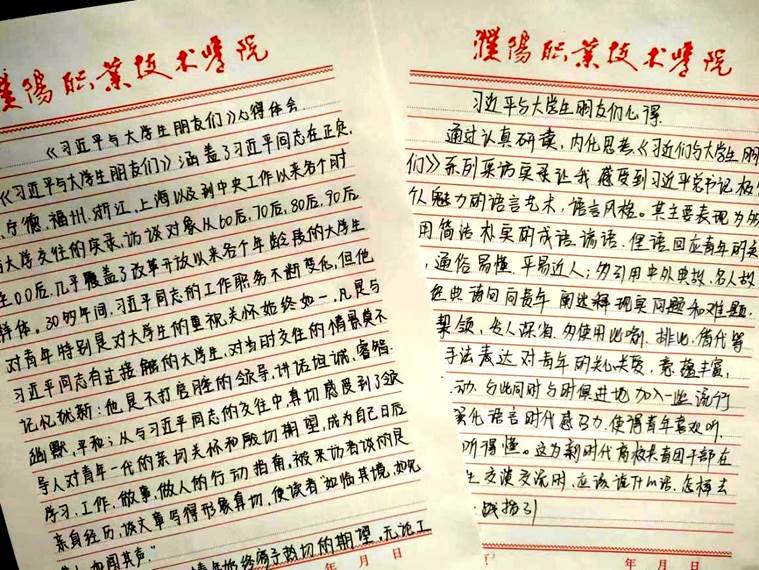 濮阳职业技术学院
《习近平与大学生朋友们》心得体会
《习近平与大学生朋友们》涵盖了习近平同志在正定、
宁德、福州、浙江、上海以及到中央工作以来各个时
大学交往的实录，访谈对象从60后，70后，80后，90后
00后，几乎覆盖了改革开放以来各个年龄段的大学生
群体。30多年间，习近平同志的工作职务不断变化，但他
对青年特别是对大学生的重视关怀始终如一，凡是与
习近平同志有过接触的大学生，对当时交往的情景莫不
记忆犹新：他是不打官腔的领导，讲话坦诚，睿智，
幽默，平和；从与习近平同志的交往中，真切感受到了领
导人对青年一代的亲切关怀和殷切期望，成为自己日后
学习，工作，做事，做人的行动指南，被采访者谈的是
亲身经历，该文章写得形象真切，使读者如临其境，如见
闻其声。"
始终寄予热切的期望，无论工
年 月 日
濮阳职业技术学院
习近平与大学生朋友们心得
通过认真研读，内化思考，《习近们与大学生朋
们》系列采访实录让我感受到习近平总书记极
个人魅力的语言艺术，语言风格。其主要表现为
用简洁朴实的成语、谚语、俚语回应青年的
，通俗易懂，平易近人；多引用中外典故，名人故
经典语句向青年阐述释现实问题和难题，
挈领，发人深省，多使用比喻，排比，借代等
手法表达对青年的关心关爱，意蕴丰富，
动，与此同时与时俱进地加入一些流行
强化语言时代感召力，使得青年喜欢听，
听得懂。这为新时代高校共青团干部在
生交谈交流用，应该说什么话，怎样去
指引
年 月 日